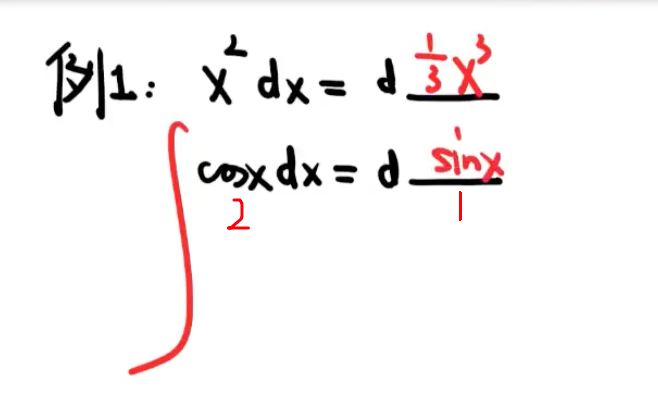 例1: x² dx = d 1/3 x³
∫ cosx dx = d sinx
2 1